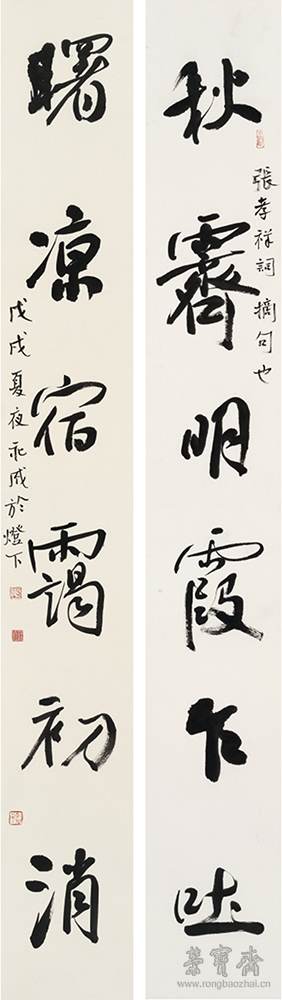 秋霽明霞乍吐
張孝祥詞摘句也
曙凉宿靄初消
戊戌夏夜永成於燈下
榮寶齋
www.rongbaozhai.cn